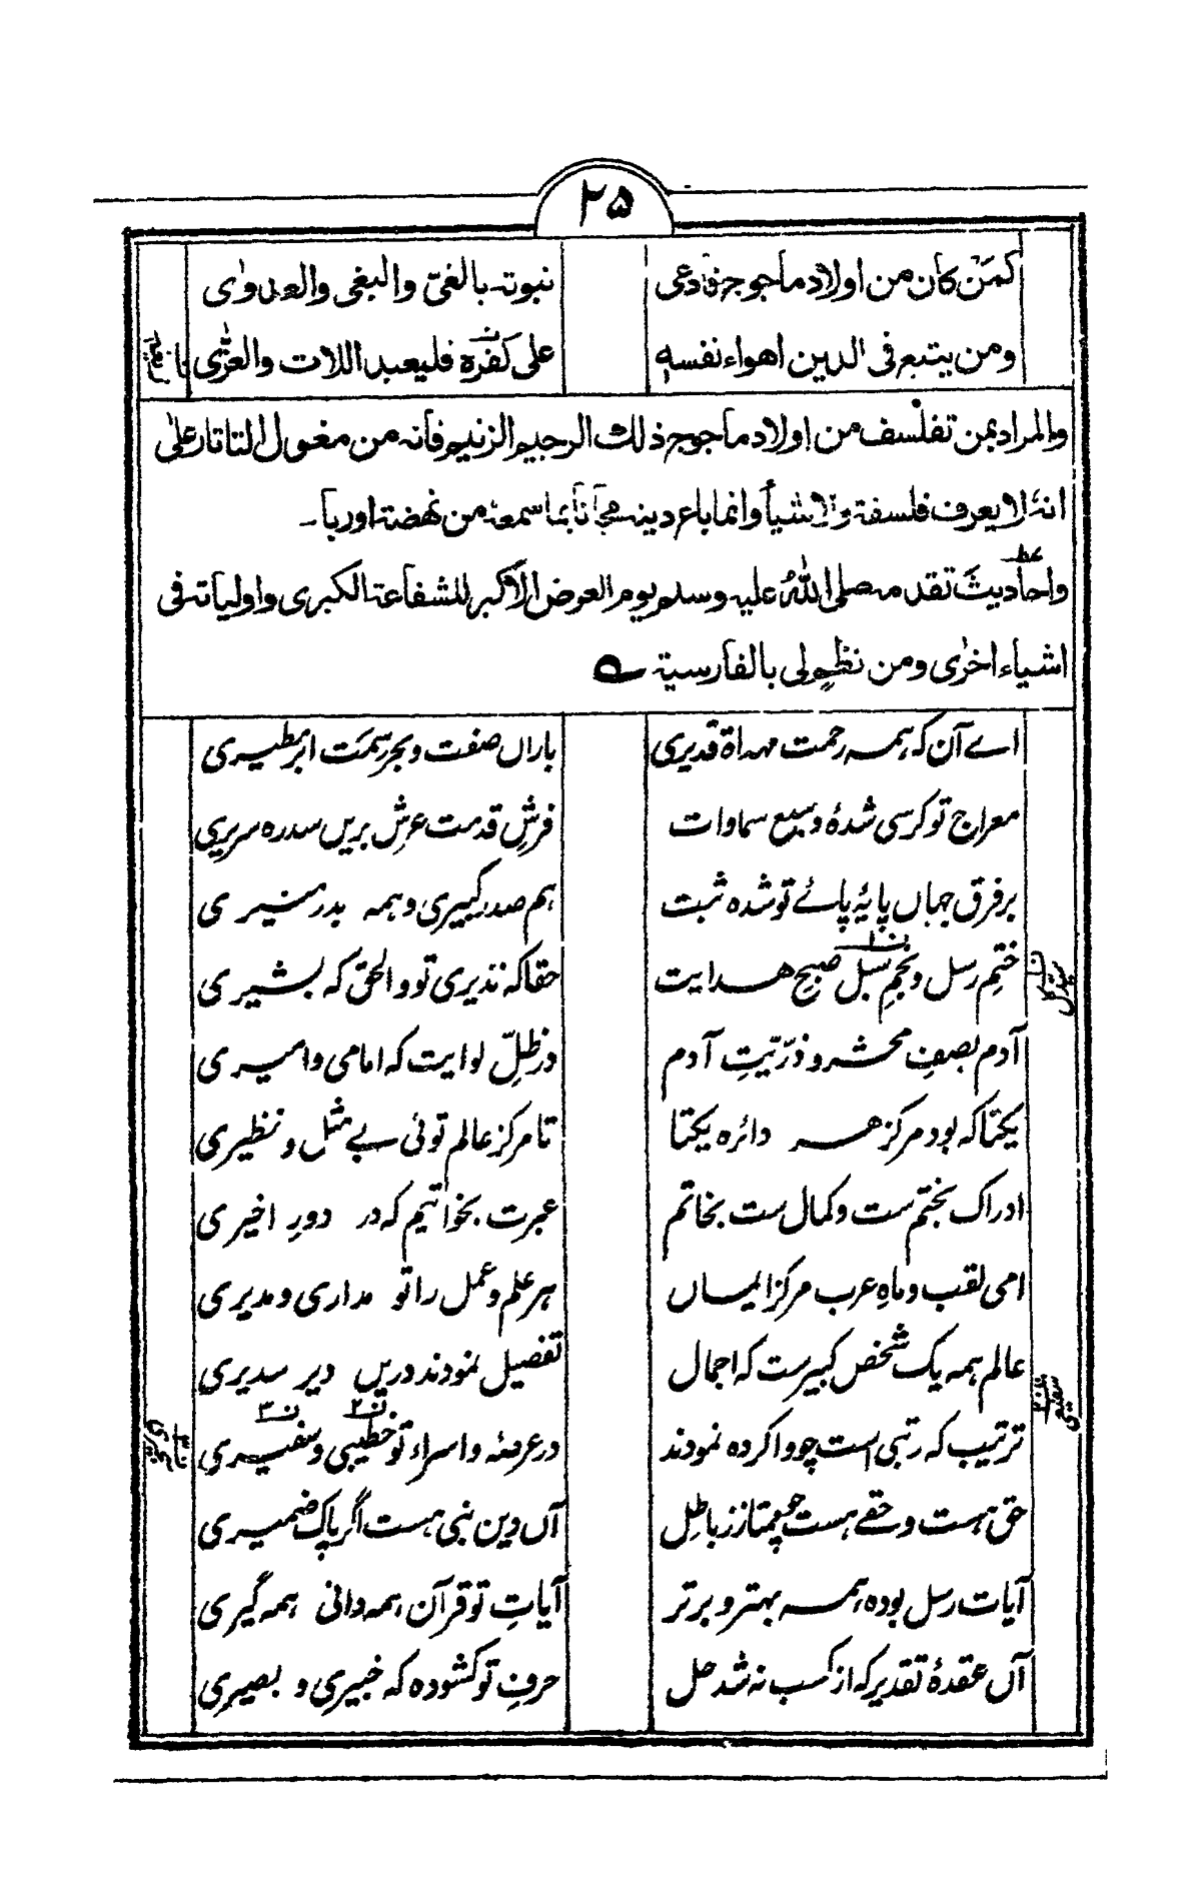 ۲۵
كمن كان من اولاد ماجوج فادعى نبوته بالغيّ والبغي والعدوٰى
ومن يتبع في الدين اهواء نفسه على كفره فليعبد اللات والعزّٰى
والمراد بمن تفلسف من اولاد ماجوج ذلك الرجيم الزنيم فأنه من مغول التاتار علىٰ
انه لا يعرف فلسفة ولا شيأ وانما باع دينه مجانا بما سمعه من نهضة اوربا۔
واحاديث تقدمه صلى اللهُ عليه وسلم يوم العرض الاكبر للشفاعة الكبرى واولياته في
اشياء اخرٰى ومن نظمٍ لي بالفارسية ؎
اے آن کہ ہمہ رحمت مہداۃ قدیری باراں صفت و بحر سمَت ابر مطیری
معراج تو کرسی شدہ و سبع سماوات فرشِ قدمت عرش بریں سدرہ سریری
بر فرق جہاں پایۂ پائے تو شدہ ثبت ہم صدر کبیری و ہمہ بدر منیری
ختمِ رسل و نجمِ سبل صبحِ ہدایت حقا کہ نذیری تو و الحق کہ بشیری
ن۱
آدم بصفِ محشر و ذرّیّتِ آدم در ظلِّ لوایت کہ امامی و امیری
یکتا کہ بود مرکز ہر دائرہ یکتا تا مرکز عالم توئی بے مثل و نظیری
ادراک بختم ست و کمال ست بخاتم عبرت بخواتیم کہ در دورِ اخیری
امی لقب و ماہِ عرب مرکز ایماں ہر علم و عمل را تو مداری و مدیری
عالم ہمہ یک شخص کبیر ست کہ اجمال تفصیل نمودند دریں دیر سدیری
ترتیب کہ رتبی است چو وا کردہ نمودند در عرصۂ و اسراء تو خطیبی و سفیری
ن۲ ن۳
حق ہست و حقے ہست چو ممتاز ز باطل آں دین نبی ہست اگر پاک ضمیری
آیات رسل بودہ ہمہ بہتر و برتر آیاتِ تو قرآن ہمہ دانی ہمہ گیری
آں عقدۂ تقدیر کہ از کسب نہ شد حل حرفِ تو کشودہ کہ خبیری و بصیری